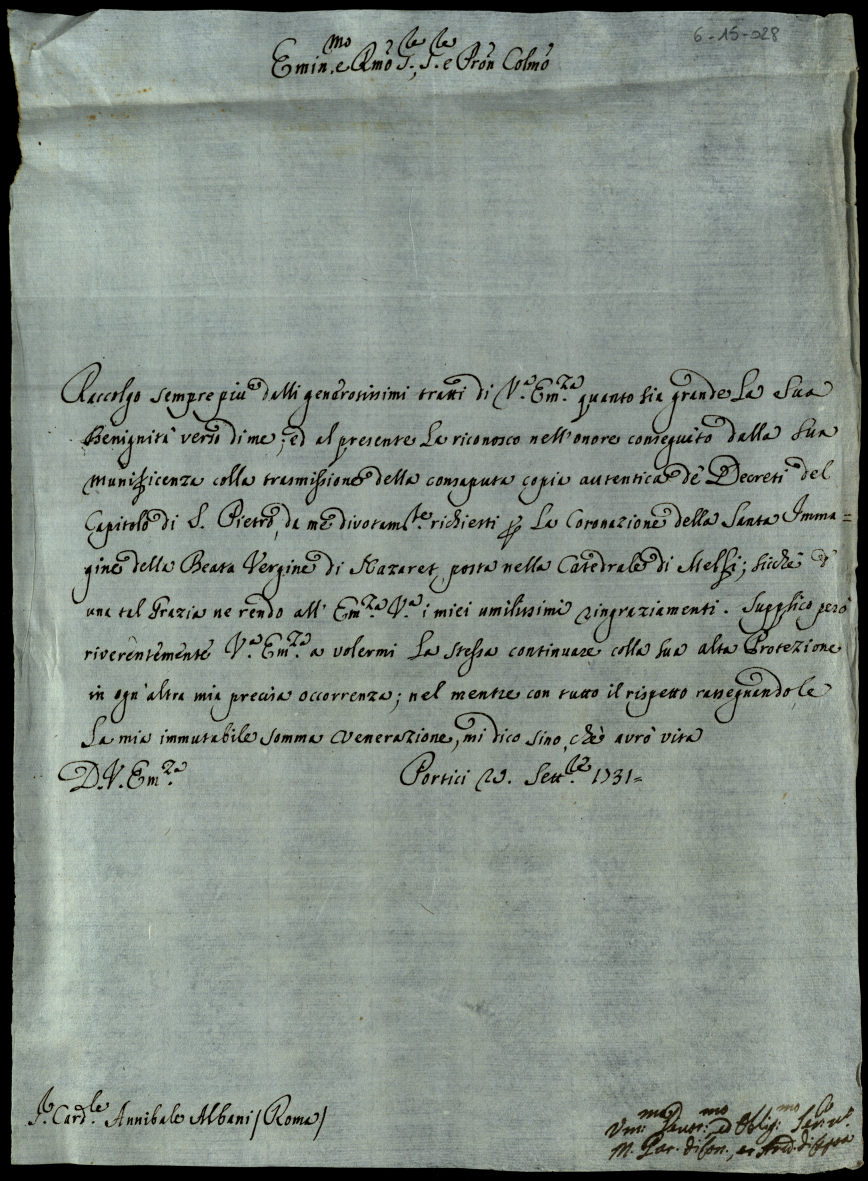 6-15-028
Emin.mo e Rmo S.re, S.re e Pron Colmo
Raccolgo sempre più dalli generosissimi tratti di V.a Em.za quanto sia grande La Sua
Benignità verso di me; ed al presente La riconosco nell'onore conseguito dalla Sua
munificenza colla trasmissione della consaputa copia autentica de' Decreti del
Capitolo di S. Pietro, da me divotam.te richiesti per La Coronazione della Santa Imma=
gine della Beata Vergine di Nazaret, posta nella Catedrale di Melfi; sicchè d'
una tal Grazia ne rendo all' Em.za V.a i miei umilissimi ringraziamenti. Supplico però
riverentemente V.a Em.za a volermi La stessa continuare colla sua alta Protezione
in ogn'altra mia precisa occorrenza; nel mentre con tutto il rispetto rassegnandole
La mia immutabile somma venerazione, mi dico sino, chè avrò vita
D. V. Em.za Portici 29. Sett.re 1731=
S.r Card.le Annibale Albani (Roma)
Um:mo Devot:mo ed Oblig:mo
M.